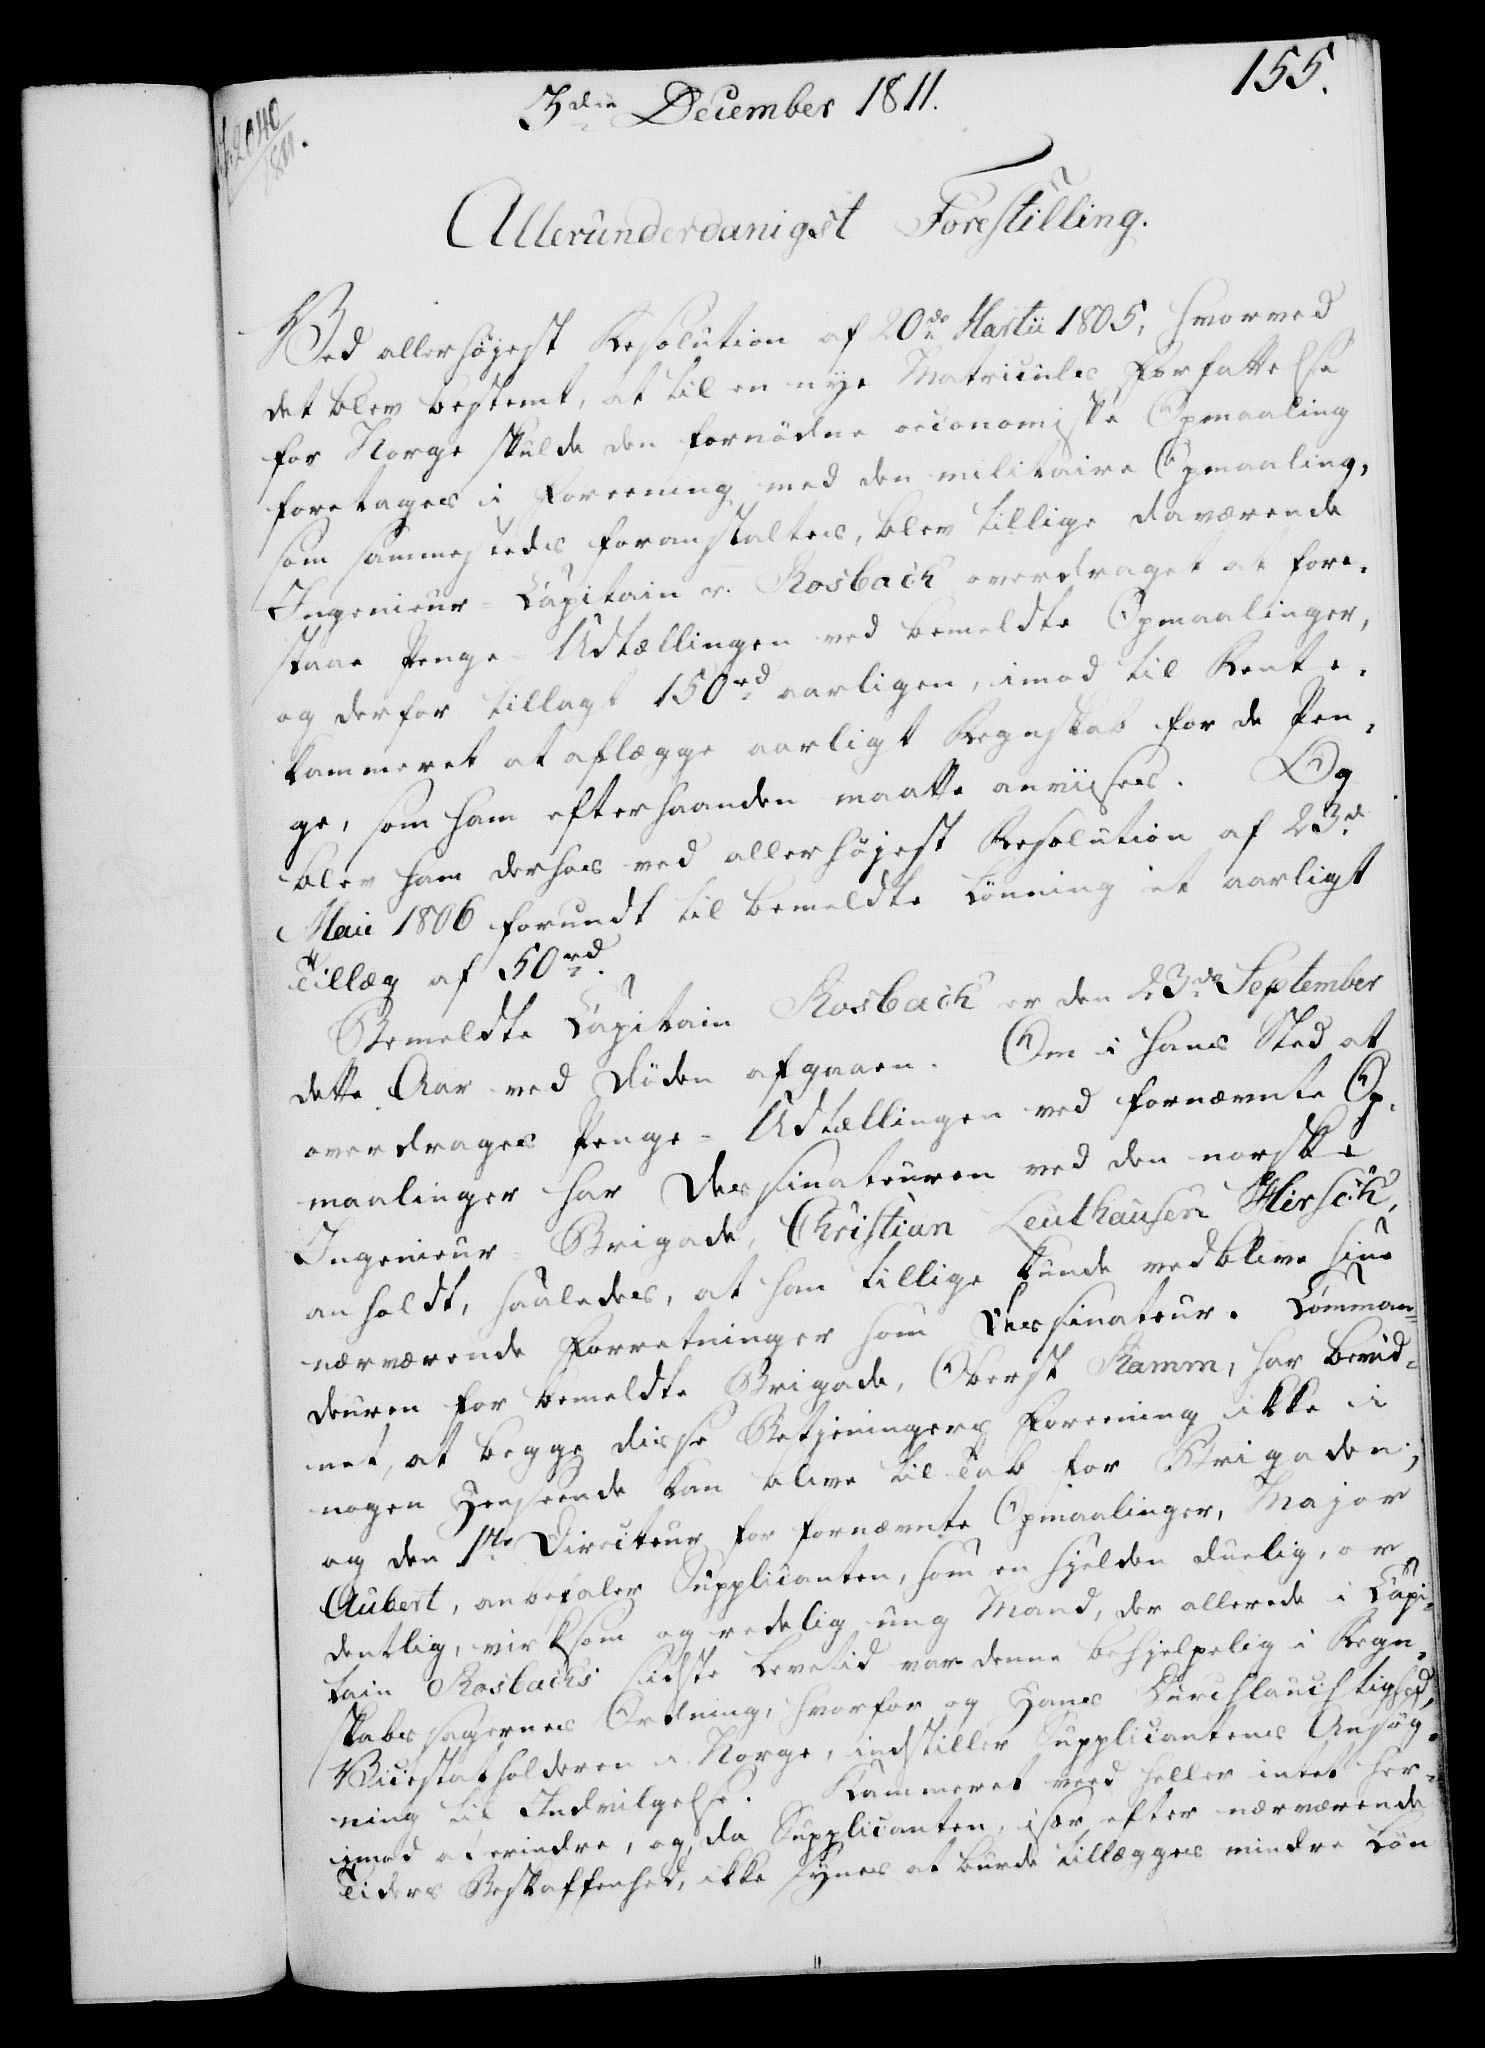 155.
3die December 1811.
2040
1811.
Allerunderdanigst Forestilling.
Ved allerhøjest Resolution af 20de Martii 1805, hvorved
det blev bestemt, at til en nye Matriculs Forfattelse
for Norge skulde den fornödne oeconomiske Opmaaling
foretages i Foreening med den militaire Opmaaling,
som sammesteds foranstaltes, blev tillige daværende
Ingenieur-Capitain v. Rosbach overdraget at fore-
staae Penge-Udtællingen ved bemeldte Opmaalinger,
og derfor tillagt 150rd aarligen, imod til Rente-
kammeret at aflægge aarligt Regnskab for de Pen-
ge, som ham efterhaanden maatte anviises. Og
blev ham derhos ved allerhøjest Resolution af 23d
Maii 1806 forundt til bemeldte Lönning et aarligt
Tillæg af 50rd.
Bemeldte Capitain Rosbach er den 23de September
dette Aar ved Döden afgaaen. Om i hans Sted at
overdrages Penge-Udtællingen ved fornævnte Op-
maalinger har Dessinateuren ved den norske
Ingenieur-Brigade, Christian Leuthausen Hirsch,
anholdt, saaledes, at han tillige kunde vedblive sine
nærværende Forretninger som Dessinateur. Comman-
deuren for bemeldte Brigade, Oberst Ramm, har bevid-
net, at begge disse Betjeningers Foreening ikke i
nogen Henseende kan blive til Tab for Brigaden;
og den 1ste Directeur for fornævnte Opmaalinger, Major
Aubert, anbefaler Supplicanten, som en sjelden duelig, or-
dentlig, virksom og redelig ung Mand, der allerede i Capi-
tain Rosbachs sidste Levetid var denne behjelpelig i Regn-
skabssagernes Ordning, hvorfor og Hans Durchlauchtighed,
Vicestatholderen i Norge, indstiller Supplicantens Ansøg-
ning til Indvilgelse. Kammeret veed heller intet her-
imod at erindre, og, da Supplicanten, især efter nærværende
Tiders Beskaffenhed, ikke synes at burde tillægges mindre Lön